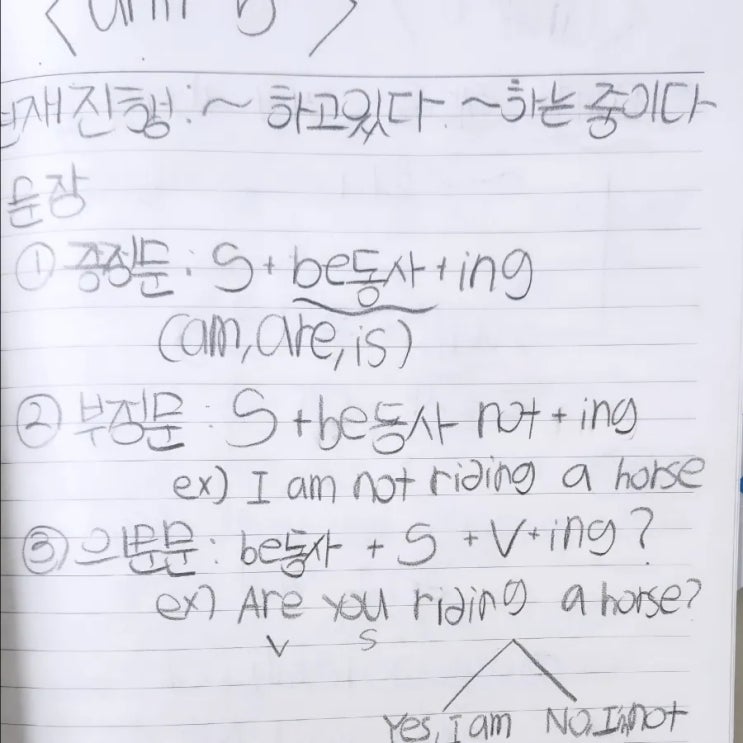 재진행: ~ 하고있다 ~하는 중이다
문장
① 긍정문: S + be동사 + ing
(am, are, is)
② 부정문: S + be동사 not + ing
ex) I am not riding a horse
③ 의문문: be동사 + S + V + ing?
ex) Are you riding a horse?
V S
Yes, I am No, I'm not